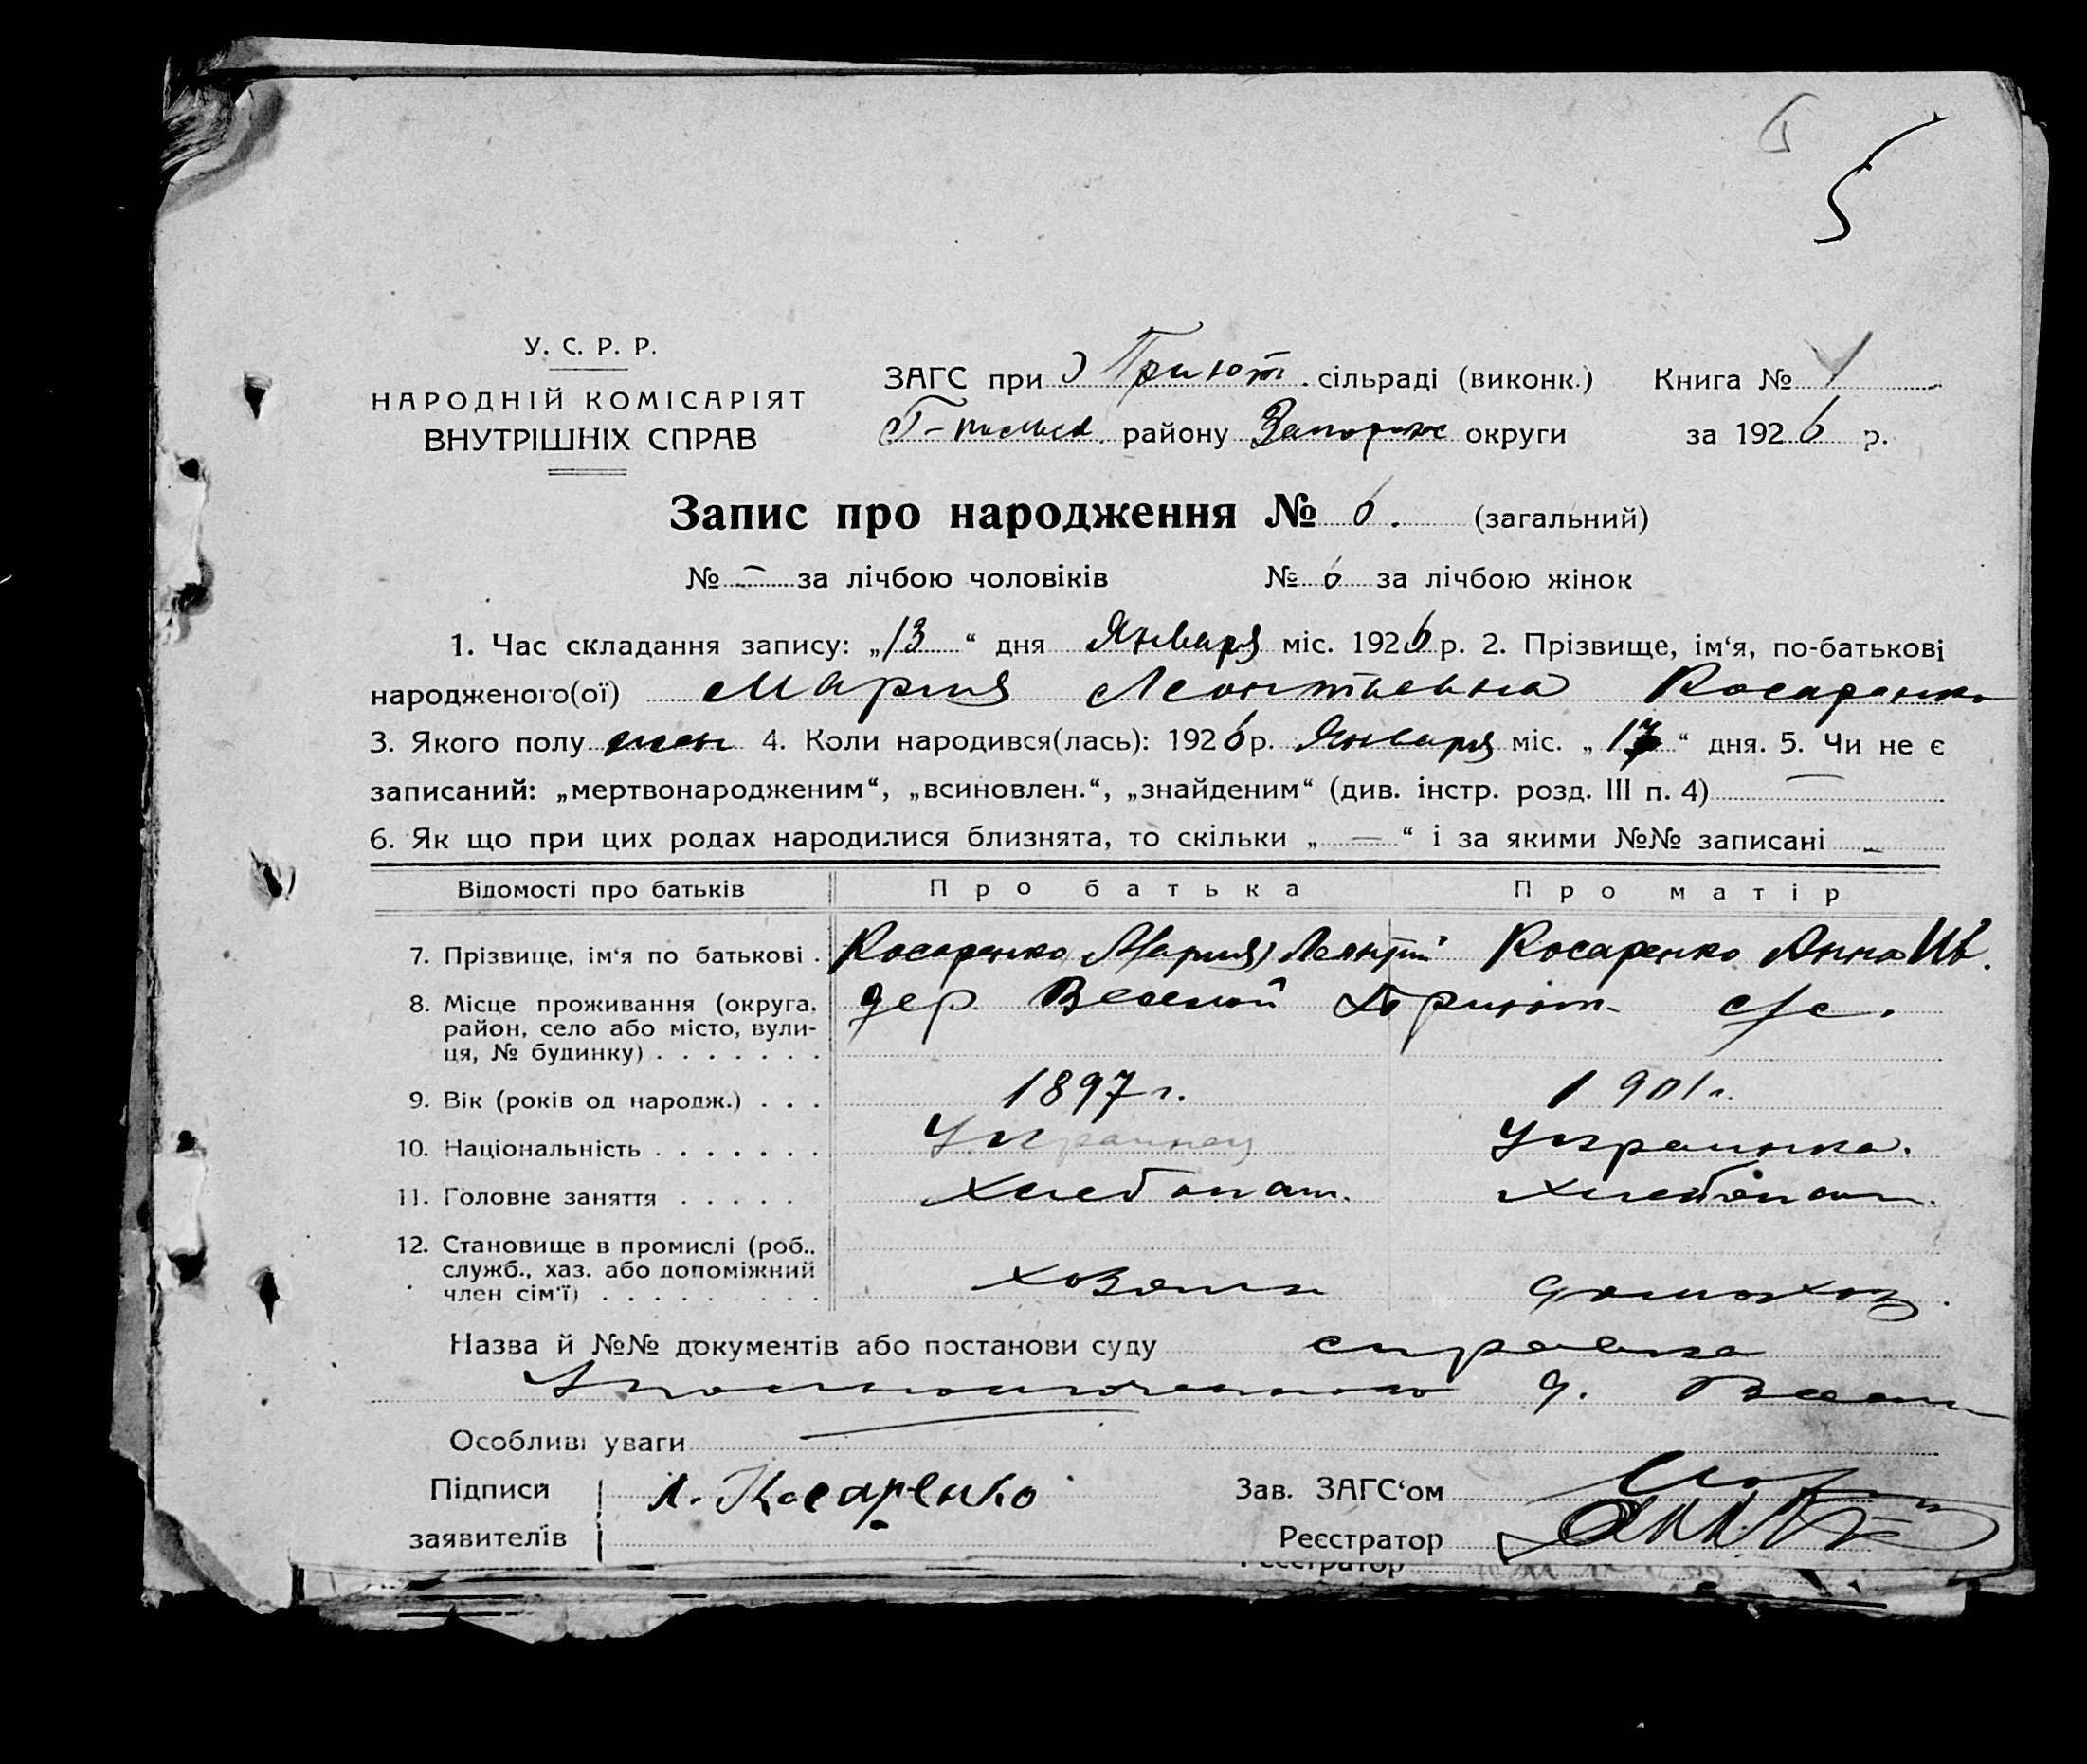 5
У. С. Р. Р.
НАРОДНІЙ КОМІСАРІЯТ
ВНУТРІШНІХ СПРАВ
ЗАГС при Приют. сільраді (виконк.)
районy Запориж округи
Книга № 1
за 1926 р.
Запис про народження № 6. (загальний)
№ – за лічбою чоловіків № 6 за лічбою жінок
1. Час складання запису: „13“ дня Января міс. 1926 р. 2. Прізвище, ім‘я, по-батькові
народженого(ої) Мария Леонтиевна Косаренко
3. Якого полу жен 4. Коли народився(лась): 1926 р. Января міс. „ “ дня. 5. Чи не є
записаний: „мертвонародженим“, „всиновлен.“, „знайденим“ (див. інстр. розд. III п. 4) —
6. Як що при цих родах народилися близнята, то скільки „ — “ і за якими №№ записані –
Відомості про батьків Про батька Про матір
7. Прізвище, ім‘я по батькові . Косаренко Косаренко Анна Ив.
8. Місце проживання (округа, дер. Веселой Приют- с/с.
район, село або місто, вули-
ця, № будинку) . . . . . . .
9. Вік (років од народж.) . . . 1897 г. 1901 г.
10. Національність . . . . . . . Украинец Украинка.
11. Головне заняття . . . . . Хлебопаш. Хлебопаш.
12. Становище в промислі (роб.,
служб., хаз. або допоміжний
член сім‘ї) . . . . . . . . . Хозяин домохоз.
Назва й №№ документів або постанови суду справка
Уполномоченного д. Весел
Особливі уваги —
Підписи Л. Косаренко Зав. ЗАГС‘ом
заявителів Реєстратор
Реєстратор